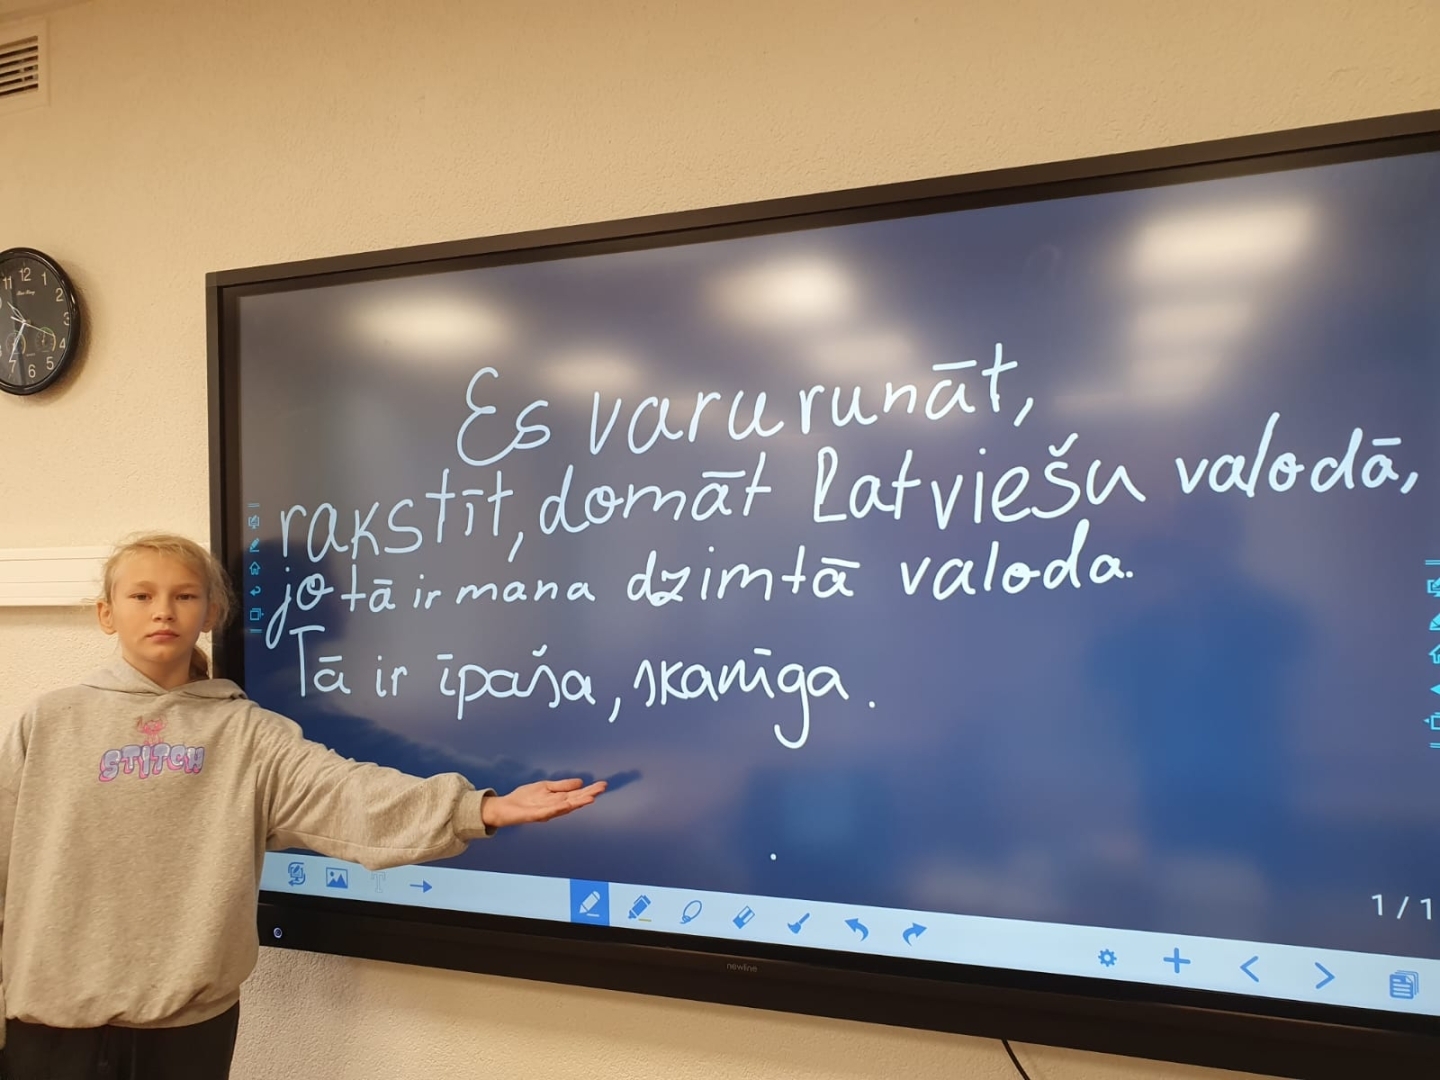 Es varu runāt,
rakstīt, domāt Latviešu valodā,
jo tā ir mana dzimtā valoda.
Tā ir īpaša, skanīga.
STITCH
1/1
newline
11 12 1 2 3 4 5 6 7